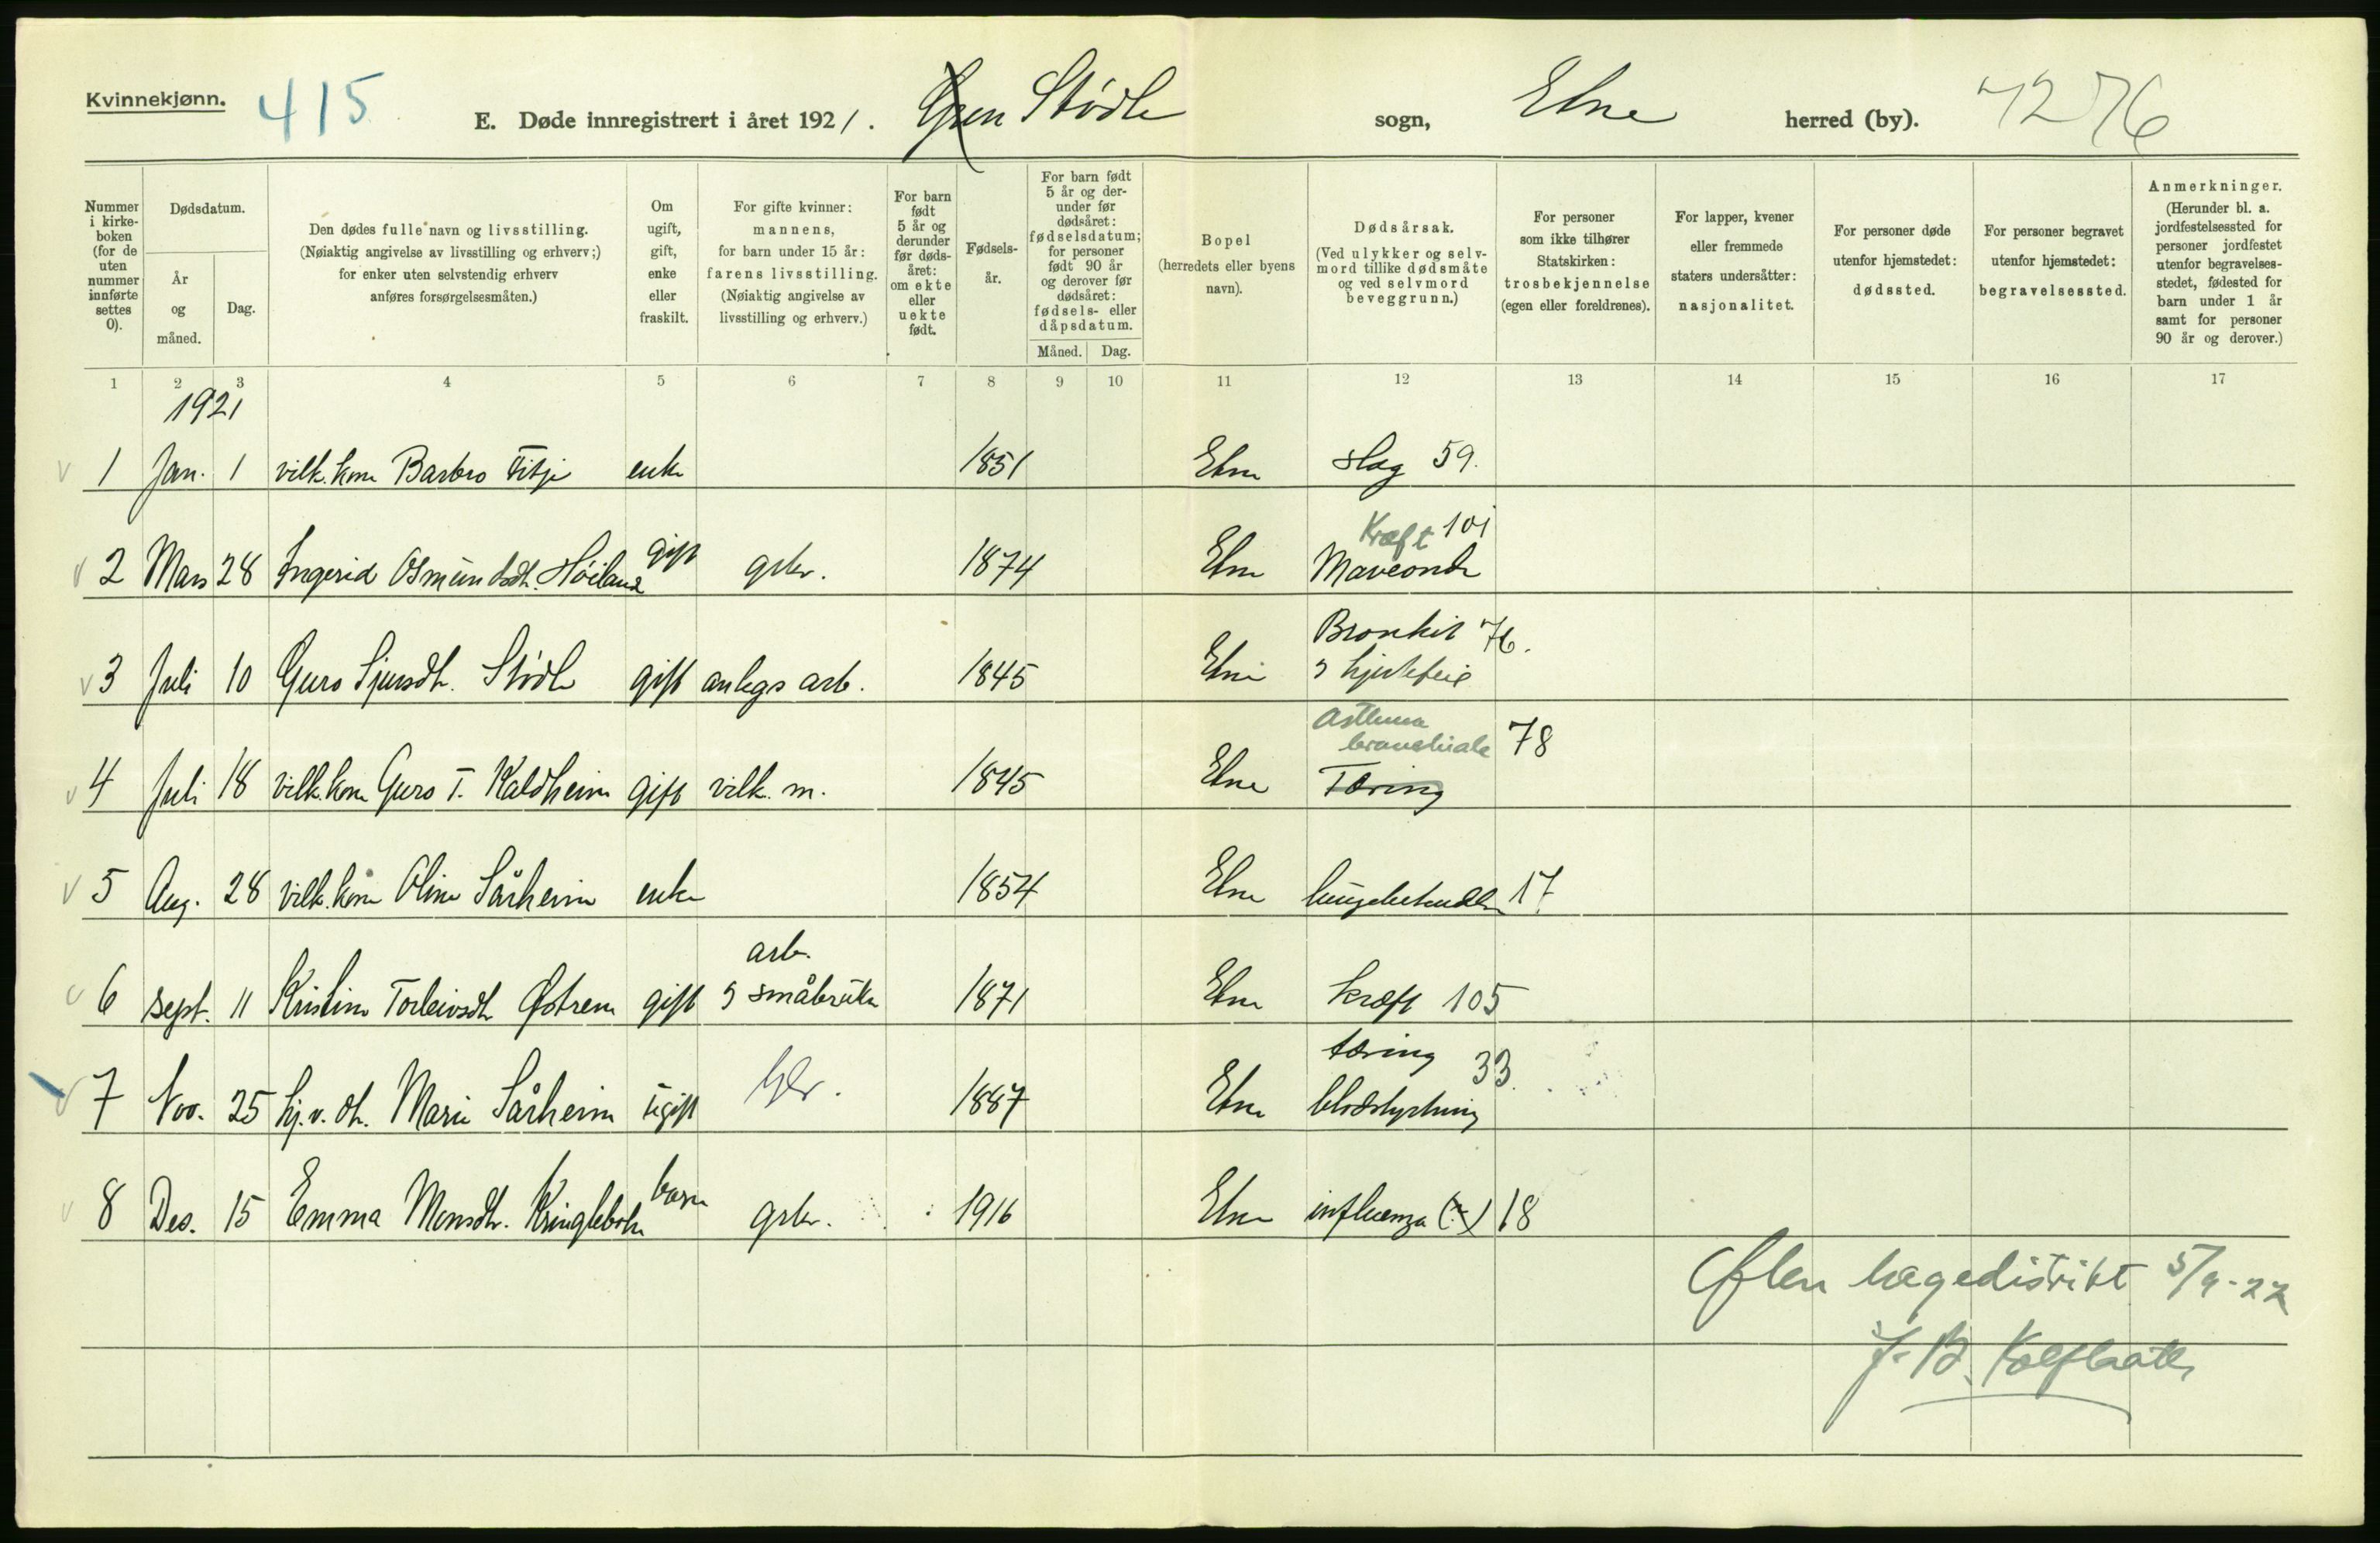 Kvinnekjønn.
415
E. Døde innregistrert i året 1921. Stødle sogn, Etne herred (by). 7276
Nummer i kirkeboken (for de uten nummer innførte settes 0).
Dødsdatum.
År og måned.
Dag.
Den dødes fulle navn og livsstilling.
(Nøiaktig angivelse av livsstilling og erhverv;)
for enker uten selvstendig erhverv
anføres forsørgelsesmåten.)
Om ugift, gift, enke eller fraskilt.
For gifte kvinner: mannens, for barn under 15 år: farens livsstilling. (Nøiaktig angivelse av livsstilling og erhverv.)
For barn født 5 år og derunder før dødsåret: om ekte eller uekte født.
Fødselsår.
For barn født 5 år og derunder før dødsåret: fødselsdatum; for personer født 90 år og derover før dødsåret: fødsels- eller dåpsdatum.
Måned. Dag.
Bopel (herredets eller byens navn).
Dødsårsak. (Ved ulykker og selvmord tillike dødsmåte og ved selvmord beveggrunn.)
For personer som ikke tilhører Statskirken: trosbekjennelse (egen eller foreldrenes).
For lapper, kvener eller fremmede staters undersåtter: nasjonalitet.
For personer døde utenfor hjemstedet: dødssted.
For personer begravet utenfor hjemstedet: begravelsessted.
Anmerkninger. (Herunder bl. a. jordfestelsessted for personer jordfestet utenfor begravelsesstedet, fødested for barn under 1 år samt for personer 90 år og derover.)
1 2 3 4 5 6 7 8 9 10 11 12 13 14 15 16 17
1921
1 Jan. 1 vilk. kone Barbro Fitje enke 1851 Etne slag 59.
Kræft 101
2 Mars 28 Ingerid Osmundsdt. Høiland gift gbr. 1874 Etne Maveonde
Bronkit 76.
3 Juli 10 Guro Sjursdt. Stødle gift anlegs arb. 1845 Etne & hjertefeil
Asthma bronchiale 78
4 Juli 18 vilk. kone Guro T. Kaldheim gift vilk. m. 1845 Etne Tæring
5 Aug. 28 vilk. kone Oline Sårheim enke 1854 Etne 17
arb.
6 Sept. 11 Kristine Torleivsdt. Østrem gift & småbruker 1871 Etne kræft 105
tæring 33
7 Nov. 25 hj. v. dt. Marie Sårheim ugift 1887 Etne blodstyrtning
8 Des. 15 Emma Monsdt. Kringlebotn barn gbr. 1916 Etne influenza (?) 18
Ølen lægedistrikt 5/9-22